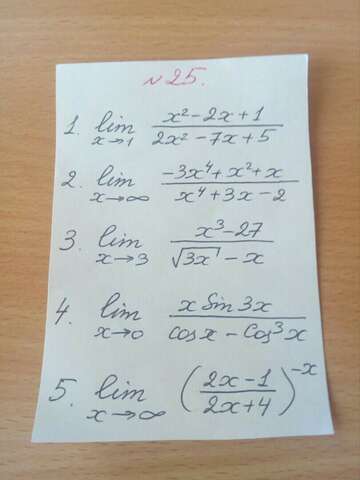 №25.
1. lim x→1 (x²-2x+1)/(2x²-7x+5)
2. lim x→∞ (-3x⁴+x²+x)/(x⁴+3x-2)
3. lim x→3 (x³-27)/(√3x - x)
4. lim x→0 (x Sin 3x)/(cos x - Cos³x)
5. lim x→∞ ((2x-1)/(2x+4))^-x